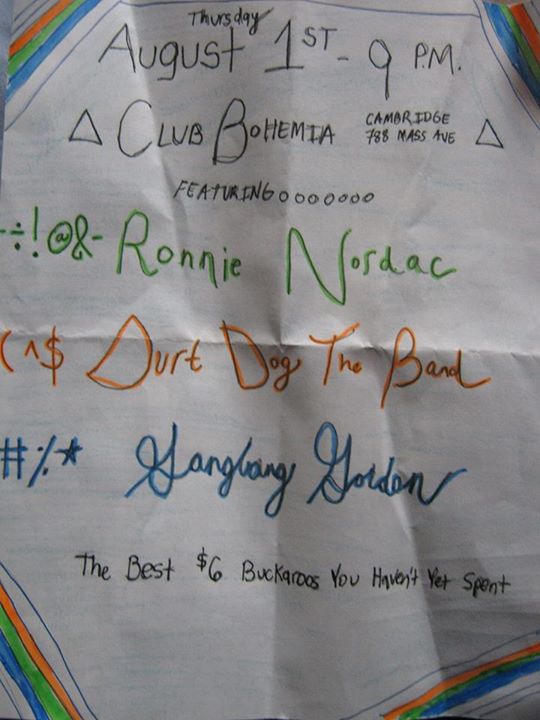 Thursday
August 1ST - 9 P.M.
△ Club Bohemia CAMBRIDGE △
788 MASS AVE
FEATURING ooooooo
-÷!@&- Ronnie Nordac
(^$ Durt Dog The Band
#%* Gangbang Gordon
The Best $6 Buckaroos You Haven't Yet Spent